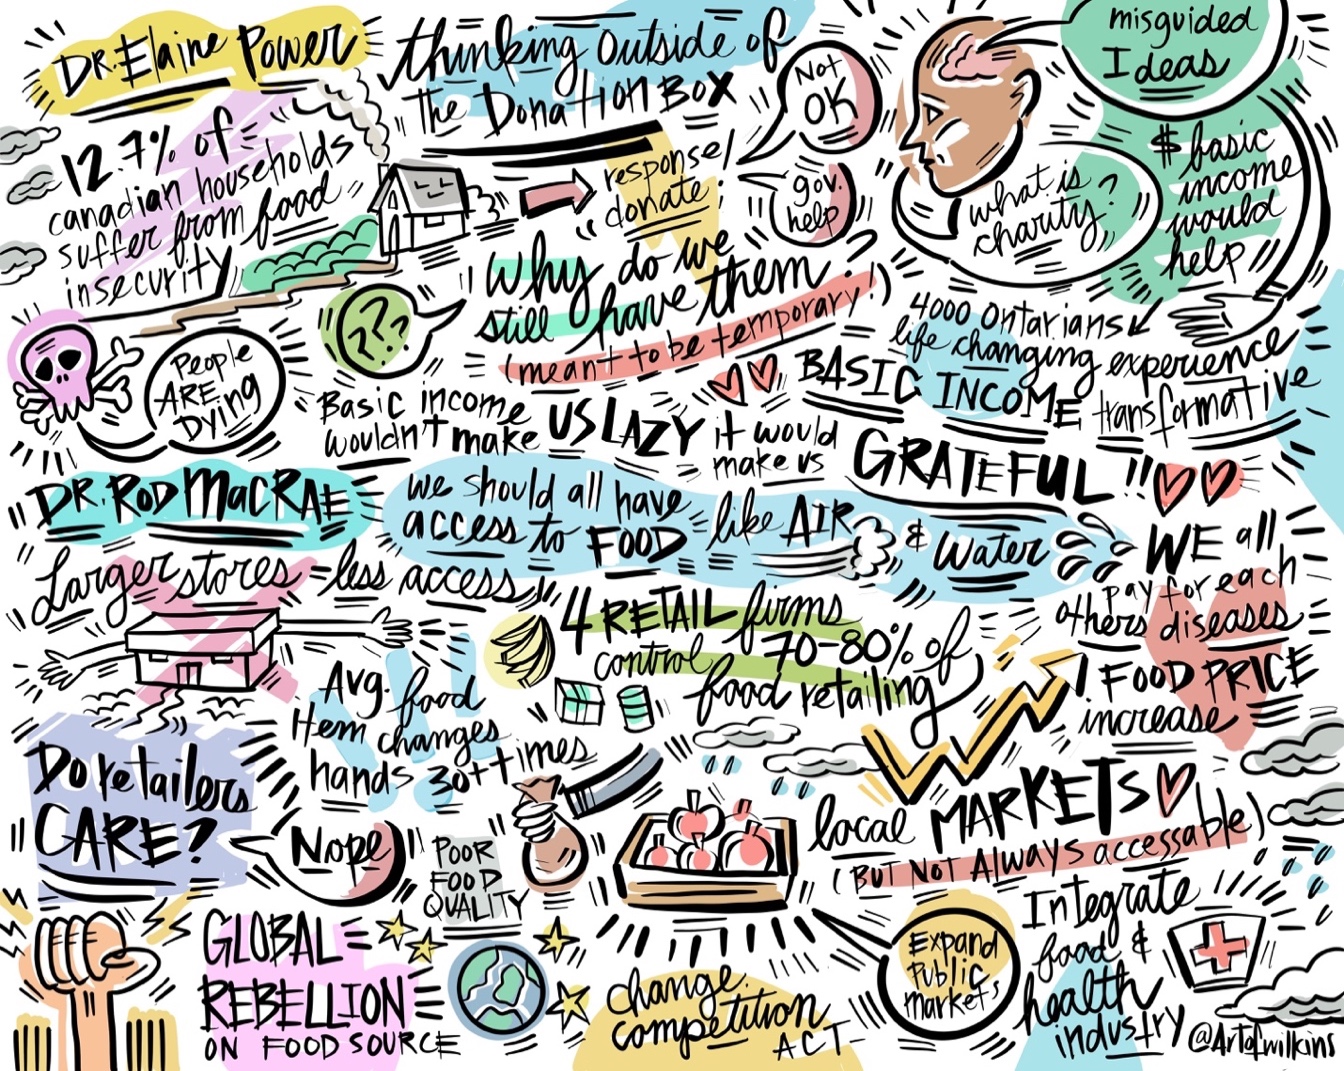 DR. Elaine Power
thinking outside of
the Donation Box
Not
OK
misguided
Ideas
12.7% of
canadian households
suffer from food
insecurity
response/
donate
gov.
help
what is
charity?
$ basic
income
would
help
"Why do we
still have them"?
(meant to be temporary!)
???
People
ARE
Dying
4000 Ontarians
life changing experience
BASIC INCOME transformative
Basic income
wouldn't make US LAZY it would
make us GRATEFUL!!
DR. ROD MacRAE
we should all have
access to FOOD like AIR
& Water
Larger stores = less access
4 RETAIL firms
control 70-80% of
food retailing
WE all
pay for each
others diseases
↑ FOOD PRICE
increase
Avg. food
Item changes
hands 30+ times
Do retailers
CARE?
Nope
POOR
FOOD
QUALITY
local MARKETS
(BUT NOT Always accessable)
Expand
Public
markets
Integrate
food &
health
industry
GLOBAL
REBELLION
ON FOOD SOURCE
change
competition
ACT
@Artofwilkins